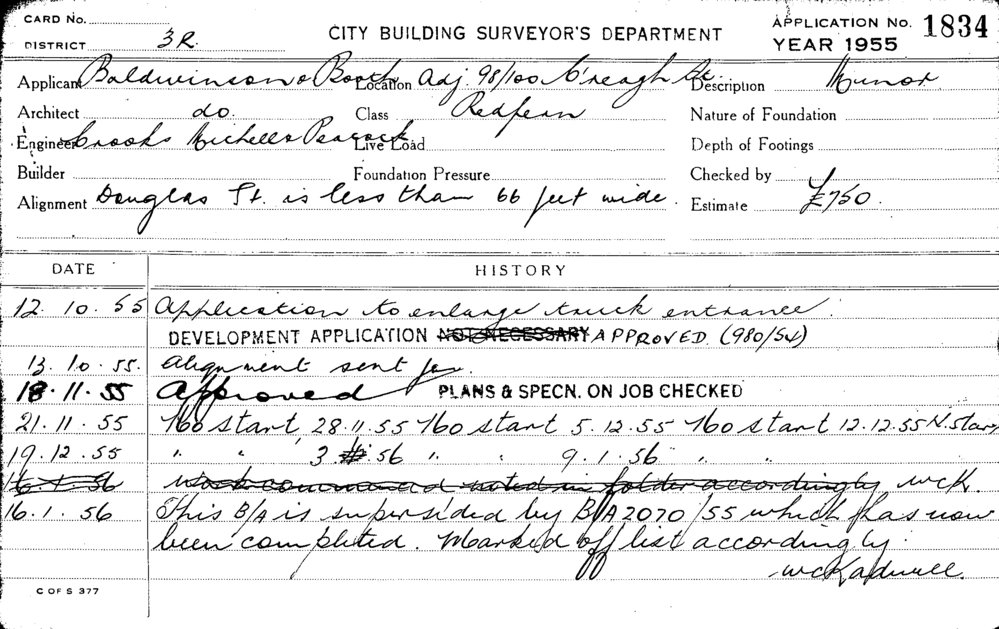 CARD No.
DISTRICT 3R.
CITY BUILDING SURVEYOR'S DEPARTMENT
APPLICATION No. 1834
YEAR 1955
Applicant Baldwinson & Booth Location Adj 98/100 C'reagh St Description Minor
Architect do. Class Redfern Nature of Foundation
Engineer Crooks Michell & Peacock Live Load Depth of Footings
Builder Foundation Pressure Checked by
Alignment Douglas St. is less than 66 feet wide. Estimate £750.
DATE HISTORY
12.10.55 Application to enlarge truck entrance.
DEVELOPMENT APPLICATION NOT NECESSARY APPROVED (980/54)
13.10.55. Alignment sent for.
18.11.55 Approved PLANS & SPECN. ON JOB CHECKED
21.11.55 No start, 28.11.55 No start 5.12.55 No start 12.12.55 N. start
19.12.55 " " 3.1.56 " " 9.1.56 " "
16.1.56 Work commenced noted in folder accordingly WCK.
16.1.56 This B/A is supersided by B/A 2070/55 which has now
been completed. Marked off list accordingly.
WCKadwell.
C OF S 377